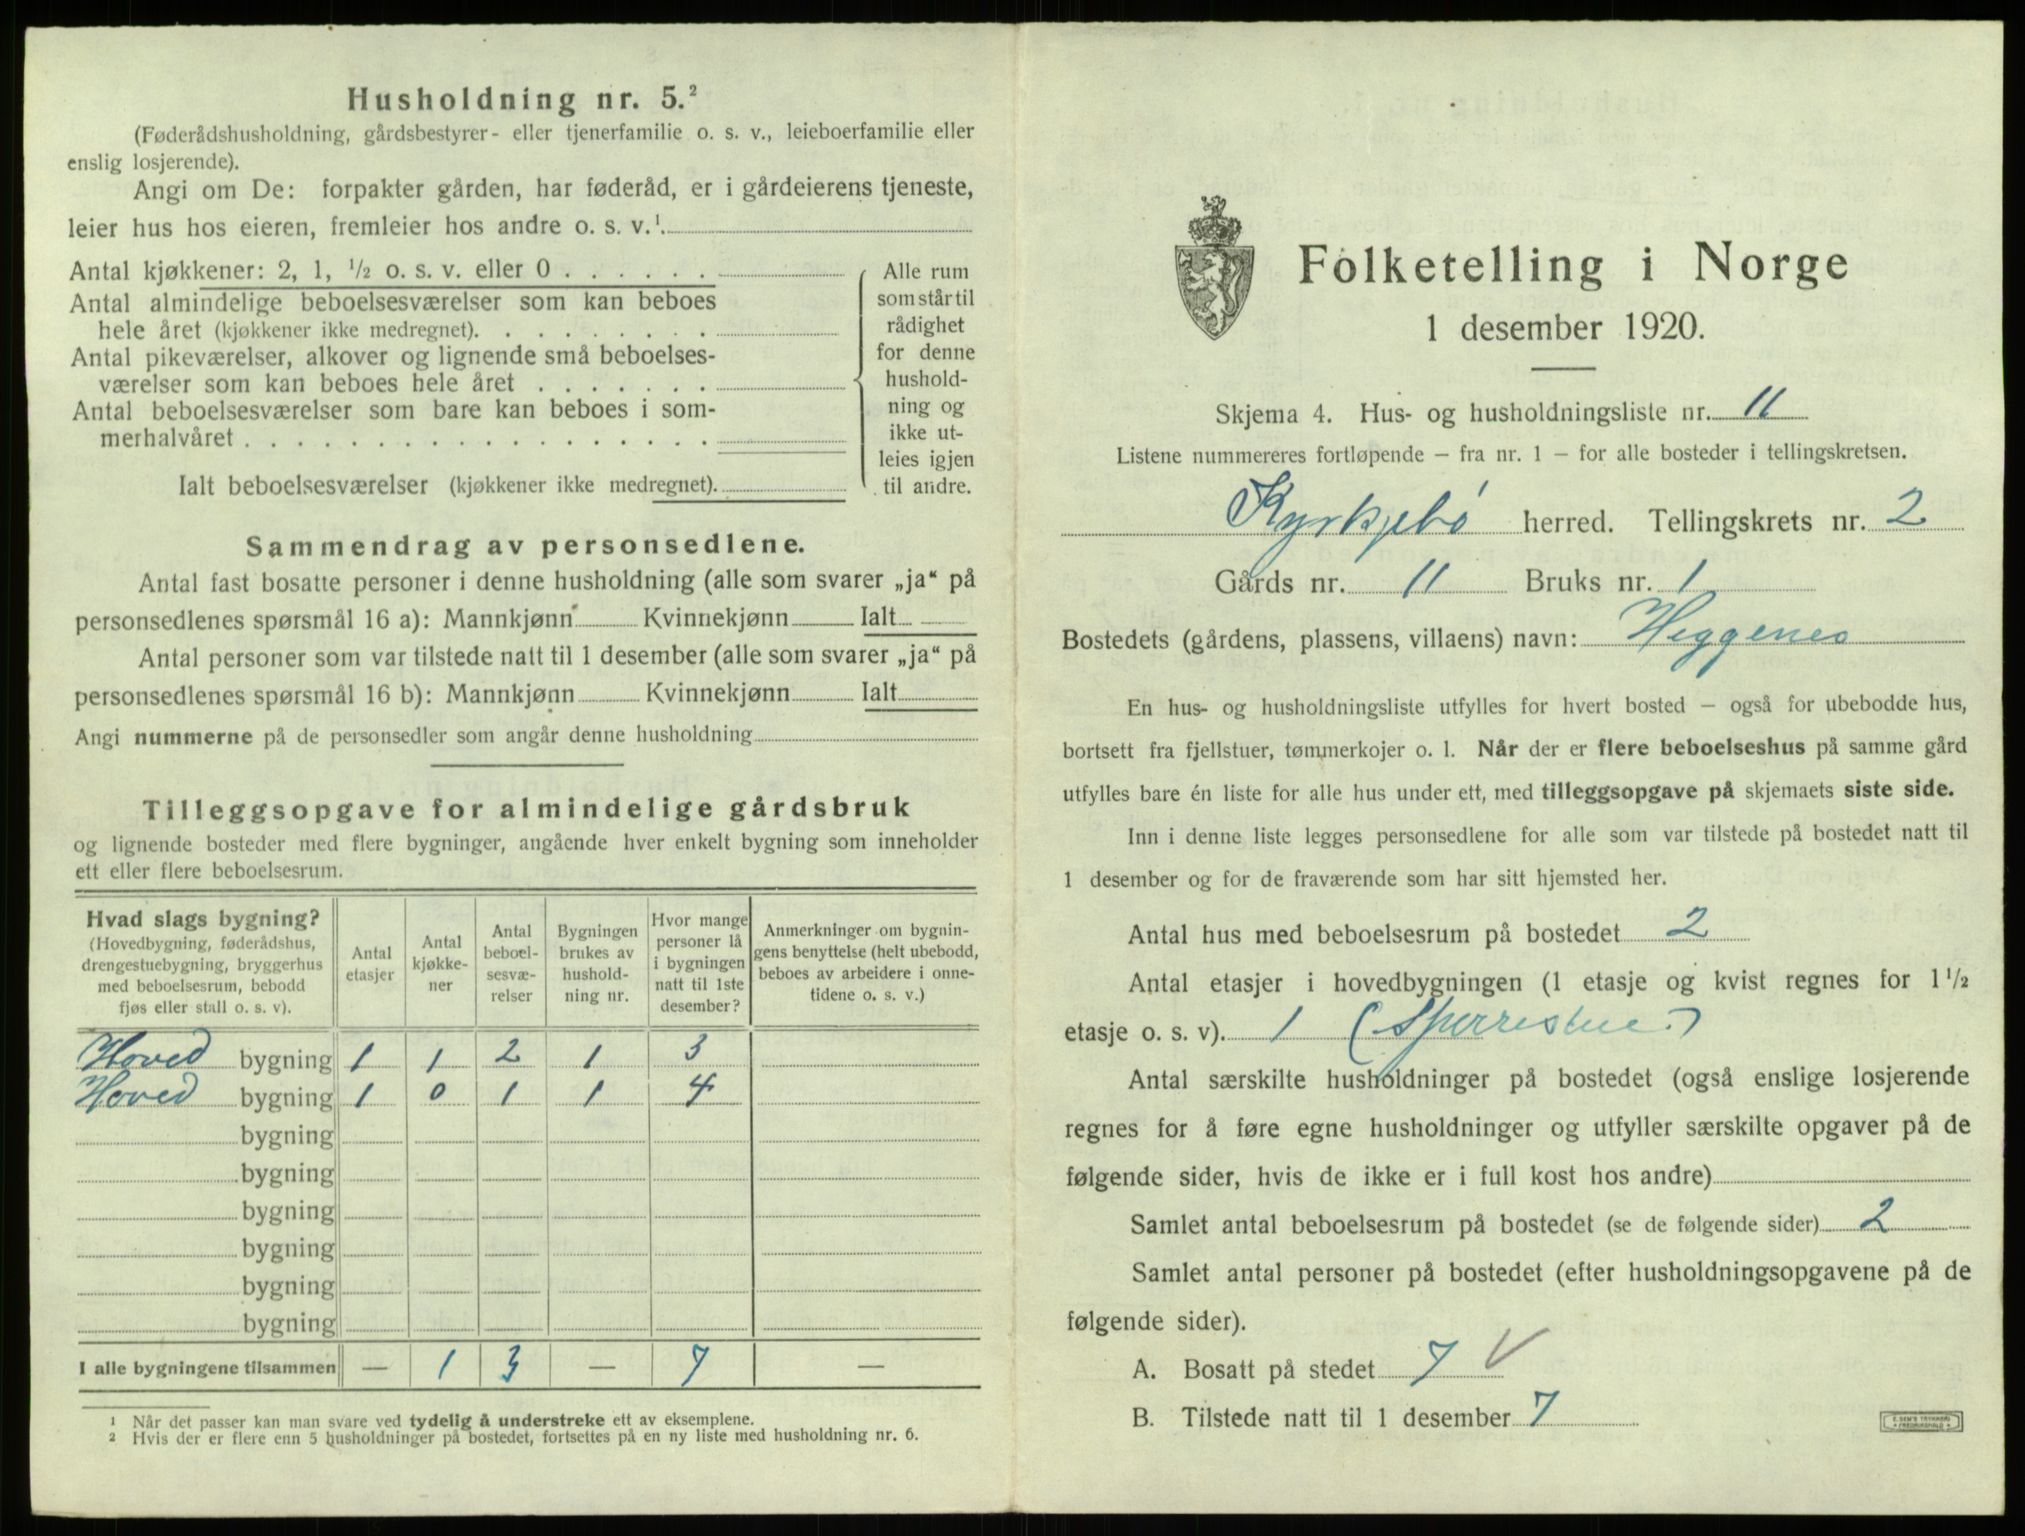 Husholdning nr. 5.²
(Føderådshusholdning, gårdsbestyrer- eller tjenerfamilie o. s. v., leieboerfamilie eller
enslig losjerende).
Angi om De: forpakter gården, har føderåd, er i gårdeierens tjeneste,
leier hus hos eieren, fremleier hos andre o. s. v.¹.
Antal kjøkkener: 2, 1, ½ o. s. v. eller 0 . . . . . .
Antal almindelige beboelsesværelser som kan beboes
hele året (kjøkkener ikke medregnet). . . . . . . . .
Antal pikeværelser, alkover og lignende små beboelses-
værelser som kan beboes hele året . . . . . . .
Antal beboelsesværelser som bare kan beboes i som-
merhalvåret . . . . . . . . . . . . . . . . . .
Ialt beboelsesværelser (kjøkkener ikke medregnet).
Alle rum
som står til
rådighet
for denne
hushold-
ning og
ikke ut-
leies igjen
til andre.
Sammendrag av personsedlene.
Antal fast bosatte personer i denne husholdning (alle som svarer „ja“ på
personsedlenes spørsmål 16 a): Mannkjønn Kvinnekjønn Ialt
Antal personer som var tilstede natt til 1 desember (alle som svarer „ja“ på
personsedlenes spørsmål 16 b): Mannkjønn Kvinnekjønn Ialt
Angi nummerne på de personsedler som angår denne husholdning
Tilleggsopgave for almindelige gårdsbruk
og lignende bosteder med flere bygninger, angående hver enkelt bygning som inneholder
ett eller flere beboelsesrum.
Hvad slags bygning?
(Hovedbygning, føderådshus,
drengestuebygning, bryggerhus
med beboelsesrum, bebodd
fjøs eller stall o. s. v).
Antal
etasjer
Antal
kjøkke-
ner
Antal
beboel-
sesvæ-
relser
Bygningen
brukes av
hushold-
ning nr.
Hvor mange
personer lå
i bygningen
natt til 1ste
desember?
Anmerkninger om bygnin-
gens benyttelse (helt ubebodd,
beboes av arbeidere i onne-
tidene o. s. v.)
Hoved bygning 1 1 2 1 3
Hoved bygning 1 0 1 1 4
bygning
bygning
bygning
bygning
bygning
bygning
I alle bygningene tilsammen — 1 3 — 7 —
¹ Når det passer kan man svare ved tydelig å understreke ett av eksemplene.
² Hvis der er flere enn 5 husholdninger på bostedet, fortsettes på en ny liste med husholdning nr. 6.
Folketelling i Norge
1 desember 1920.
Skjema 4. Hus- og husholdningsliste nr. 11
Listene nummereres fortløpende — fra nr. 1 — for alle bosteder i tellingskretsen.
Kyrkjebø herred. Tellingskrets nr. 2
Gårds nr. 11 Bruks nr. 1
Bostedets (gårdens, plassens, villaens) navn: Heggenes
En hus- og husholdningsliste utfylles for hvert bosted — også for ubebodde hus,
bortsett fra fjellstuer, tømmerkojer o. l. Når der er flere beboelseshus på samme gård
utfylles bare én liste for alle hus under ett, med tilleggsopgave på skjemaets siste side.
Inn i denne liste legges personsedlene for alle som var tilstede på bostedet natt til
1 desember og for de fraværende som har sitt hjemsted her.
Antal hus med beboelsesrum på bostedet 2
Antal etasjer i hovedbygningen (1 etasje og kvist regnes for 1½
etasje o. s. v). 1 (Sperrestue)
Antal særskilte husholdninger på bostedet (også enslige losjerende
regnes for å føre egne husholdninger og utfyller særskilte opgaver på de
følgende sider, hvis de ikke er i full kost hos andre)
Samlet antal beboelsesrum på bostedet (se de følgende sider) 2
Samlet antal personer på bostedet (efter husholdningsopgavene på de
følgende sider).
A. Bosatt på stedet 7 V
B. Tilstede natt til 1 desember 7
E. SEM'S TRYKKERI
FREDRIKSHALD